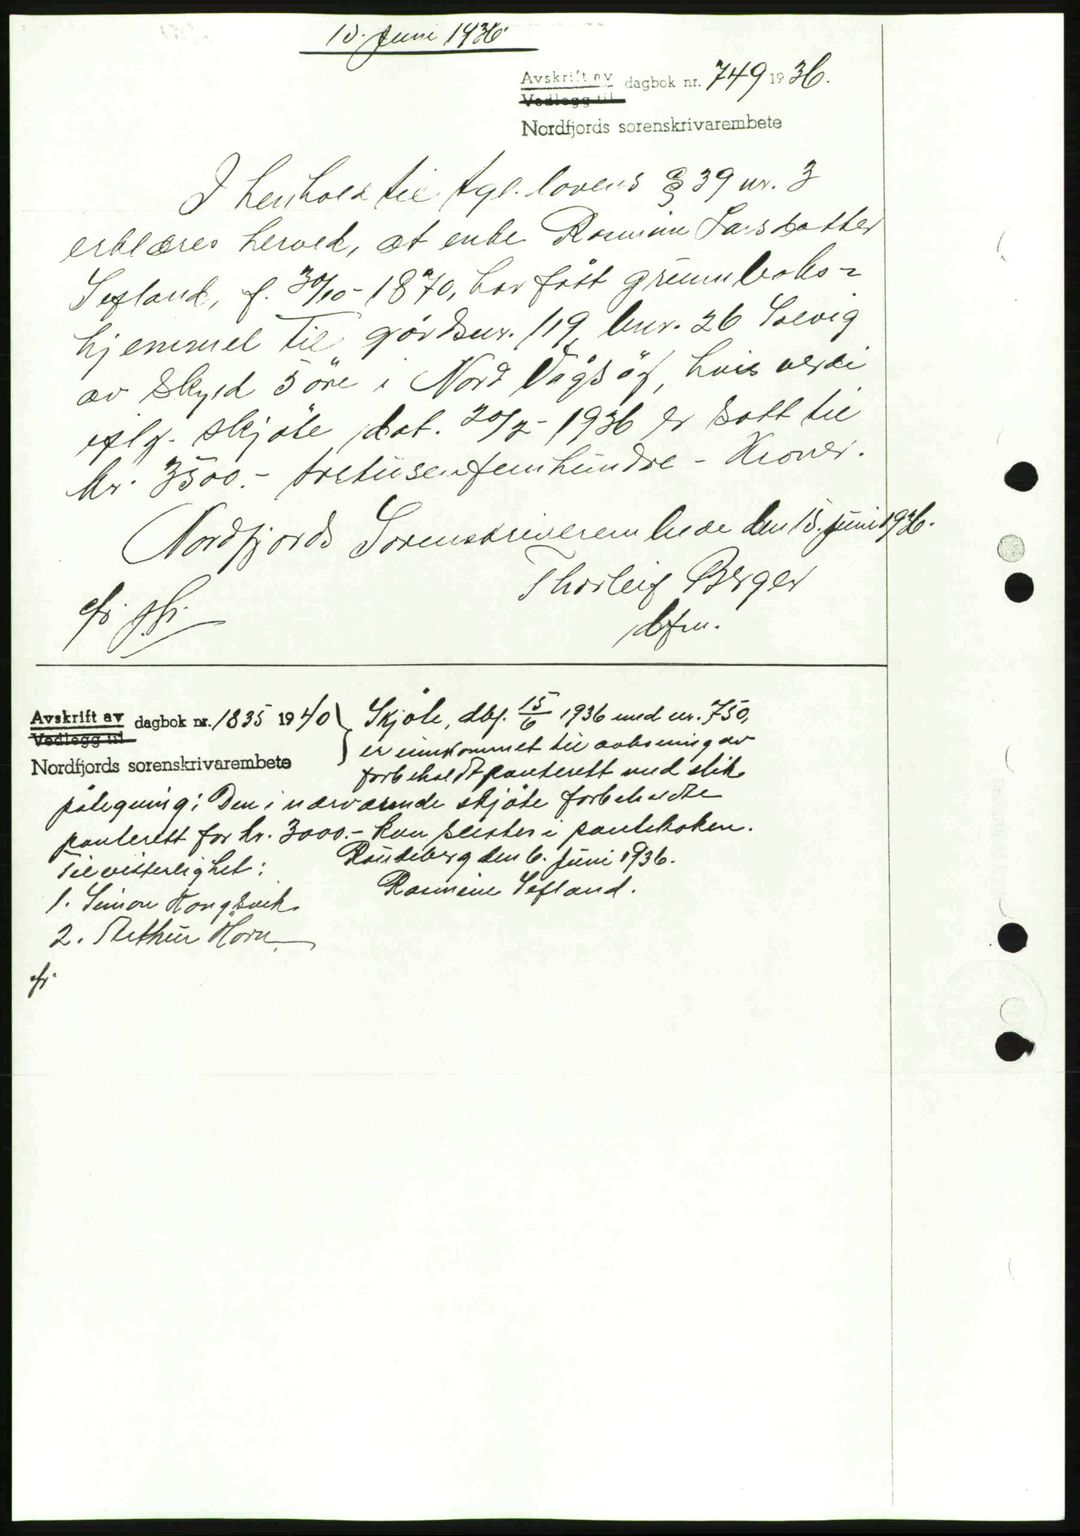 15. Juni 1936
Avskrift av dagbok nr. 749 1936.
Vedlegg til
Nordfjords sorenskrivarembete
I henhold til tgl. lovens § 39 nr. 3
erklæres herved, at enke Rasmine Larsdotter
Sefland, f. 30/10 - 1870, har fått grunnboks-
hjemmel til gårdsnr. 119, bnr. 26 Solvig
av skyld 5 öre i Nord Vågsöy, hvis verdi
iflg. skjöte dat. 20/2 - 1936 er satt til
kr. 3500.- tretusenfemhundre - Kroner.
Nordfjords Sorenskriverembede den 15. juni 1936.
Thorleif Berger
bfm.
Avskrift av dagbok nr. 1835 1940
Vedlegg til
Nordfjords sorenskrivarembete
Skjöte, dbf. 15/6 1936 med nr. 750,
er innkommet til avlysning av
forbeholdt panterett med slik
påtegning: Den i nærværende skjöte forbeholdte
panterett for kr. 3000.- kan slettes i panteboken.
Raudeberg den 6. Juni 1936.
Til vitterlighet:
Rasmine Sefland.
1. Simon Hongsvik
2. Arthur Horn